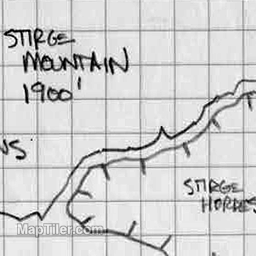 STIRGE
MOUNTAIN
1900'
STIRGE
MapTiler.com